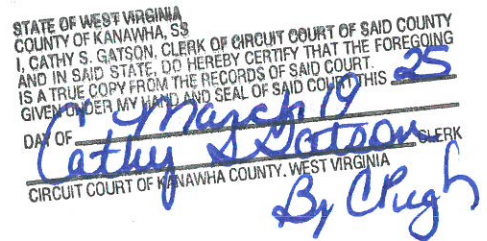 STATE OF WEST VIRGINIA
COUNTY OF KANAWHA, SS
I, CATHY S. GATSON, CLERK OF CIRCUIT COURT OF SAID COUNTY
AND IN SAID STATE, DO HEREBY CERTIFY THAT THE FOREGOING
IS A TRUE COPY FROM THE RECORDS OF SAID COURT.
GIVEN UNDER MY HAND AND SEAL OF SAID COURT THIS 25
DAY OF March 19
Cathy S Gatson CLERK
CIRCUIT COURT OF KANAWHA COUNTY, WEST VIRGINIA
By CPugh